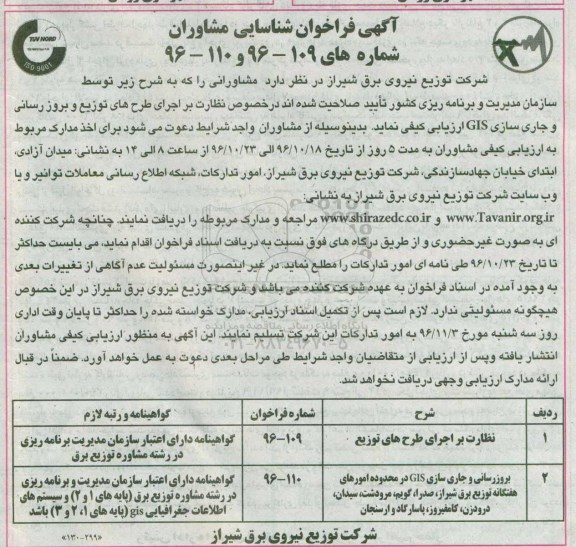 آگهی فراخوان شناسایی مشاوران
شماره های ۱۰۹ - ۹۶ و ۱۱۰ - ۹۶
TUV NORD
ISO 9001
شرکت توزیع نیروی برق شیراز در نظر دارد مشاورانی را که به شرح زیر توسط
سازمان مدیریت و برنامه ریزی کشور تأیید صلاحیت شده اند درخصوص نظارت بر اجرای طرح های توزیع و بروز رسانی
و جاری سازی GIS ارزیابی کیفی نماید. بدینوسیله از مشاوران واجد شرایط دعوت می شود برای اخذ مدارک مربوط
به ارزیابی کیفی مشاوران به مدت ۵ روز از تاریخ ۹۶/۱۰/۱۸ الی ۹۶/۱۰/۲۳ از ساعت ۸ الی ۱۴ به نشانی: میدان آزادی،
ابتدای خیابان جهادسازندگی، شرکت توزیع نیروی برق شیراز، امور تدارکات، شبکه اطلاع رسانی معاملات توانیر و یا
وب سایت شرکت توزیع نیروی برق شیراز به نشانی:
www.Tavanir.org.ir و www.shirazedc.co.ir مراجعه و مدارک مربوطه را دریافت نمایند. چنانچه شرکت کننده
ای به صورت غیرحضوری و از طریق درگاه های فوق نسبت به دریافت اسناد فراخوان اقدام نماید، می بایست حداکثر
تا تاریخ ۹۶/۱۰/۲۳ طی نامه ای امور تدارکات را مطلع نماید. در غیر اینصورت مسئولیت عدم آگاهی از تغییرات بعدی
به وجود آمده در اسناد فراخوان به عهده شرکت کننده می باشد و شرکت توزیع نیروی برق شیراز در این خصوص
هیچگونه مسئولیتی ندارد. لازم است پس از تکمیل اسناد ارزیابی، مدارک خواسته شده را حداکثر تا پایان وقت اداری
روز سه شنبه مورخ ۹۶/۱۱/۳ به امور تدارکات این شرکت تسلیم نمایند. این آگهی به منظور ارزیابی کیفی مشاوران
انتشار یافته وپس از ارزیابی از متقاضیان واجد شرایط طی مراحل بعدی دعوت به عمل خواهد آورد. ضمناً در قبال
ارائه مدارک ارزیابی وجهی دریافت نخواهد شد.
ردیف شرح شماره فراخوان گواهینامه و رتبه لازم
۱ نظارت بر اجرای طرح های توزیع ۹۶-۱۰۹ گواهینامه دارای اعتبار سازمان مدیریت برنامه ریزی
در رشته مشاوره توزیع برق
۲ بروزرسانی و جاری سازی GIS در محدوده امورهای ۹۶-۱۱۰ گواهینامه دارای اعتبار سازمان مدیریت و برنامه ریزی
هفتگانه توزیع برق شیراز، صدرا، کویم، مرودشت، سیدان، در رشته مشاوره توزیع برق (پایه های ۱ و ۲) و سیستم های
درودزن، کامفیروز، پاسارگاد و ارسنجان اطلاعات جغرافیایی gis (پایه های ۱، ۲ و ۳) باشد
شرکت توزیع نیروی برق شیراز
«۱۳۰-۲۹۹»